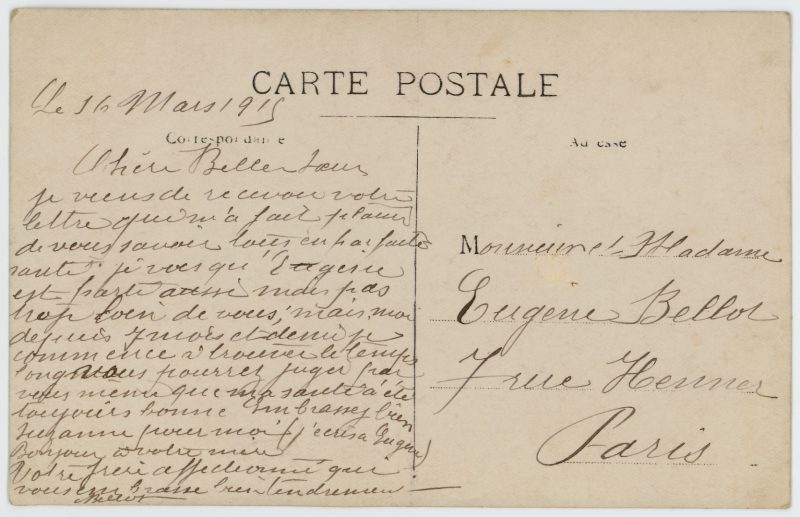 CARTE POSTALE
Le 16 Mars 1915
Correspondance
Chère Belle Sœur
je viens de recevoir votre
lettre qui m'a fait plaisir
de vous savoir tous en parfaite
santé. je vois qu'Eugène
est parti aussi mais pas
trop loin de vous, mais moi
depuis 7 mois et demi je
commence à trouver le temps
long vous pourrez juger par
vous même que ma santé a été
toujours bonne Embrassez bien
Suzanne pour moi (j'écris à Eugène)
Bonjour à votre mère
Votre frère affectionné qui
vous embrasse bien tendrement
Bellot
Adresse
Monsieur et Madame
Eugène Bellot
7 rue Henner
Paris